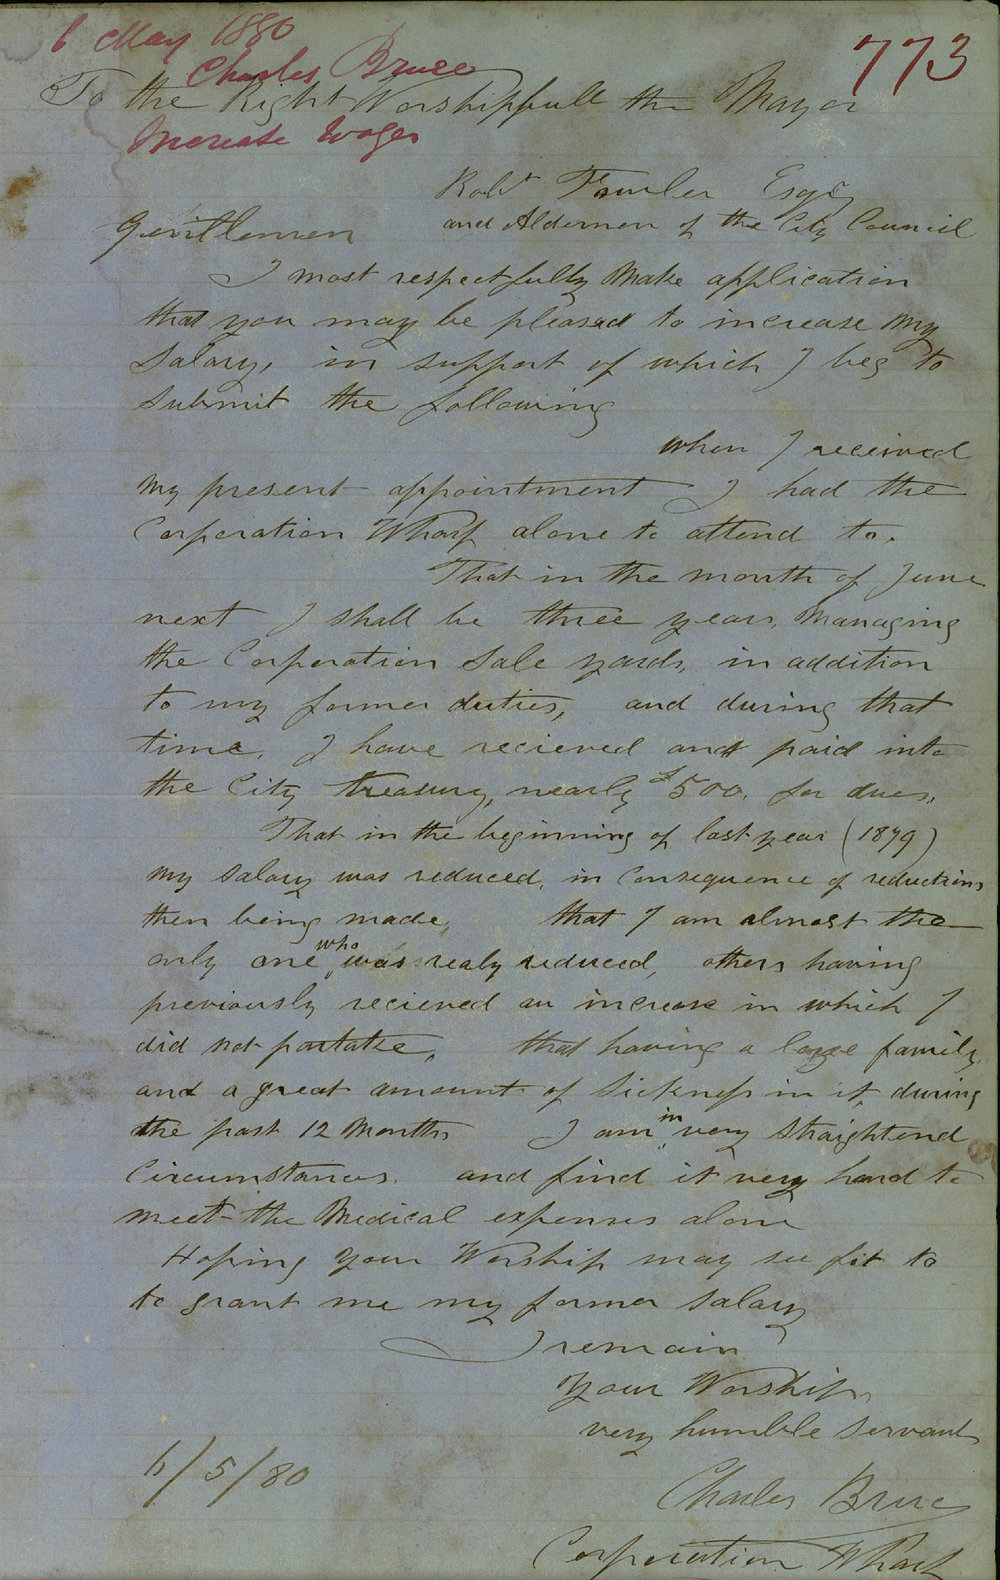 6 May 1880
773
Charles Bruce
To the Right Worshipfull the Mayor
Increase Wages
Robt Fowler Esqr
Gentlemen and Aldermen of the City Council
I most respectfully Make application
that you may be pleased to increase My
Salary, in support of which I beg to
Submit the following
When I received
My present appointment I had the
Corporation Wharf alone to attend to.
That in the month of June
next I shall be three years, Managing
the Corporation Sale yards, in addition
to my former duties, and during that
time, I have recieved and paid into
the City treasury, nearly £500. for dues.
That in the beginning of last year (1879)
My Salary was reduced, in Consequence of reductions
then being made, that I am almost the
only one who was realy reduced, others having
previously recieved an increase in which I
did not partake, that having a large family,
and a great amount of Sickness in it, during
the past 12 Months I am in very Straightend
Circumstances. and find it very hard to
meet the Medical expenses alone
Hoping Your Worship may see fit to
to grant me my former Salary
I remain
Your Worships
very humble Servant
6/5/80
Charles Bruce
Corporation Wharf